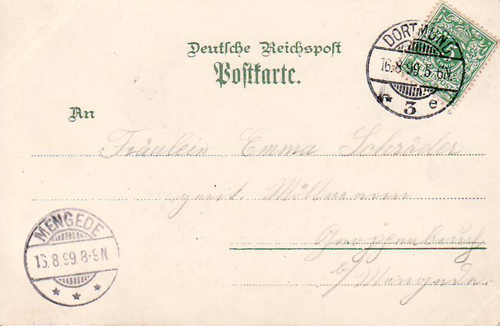 Deutsche Reichspost
Postkarte.
DORTMUND
16.8.99.5-6N.
* * 3 e
5
An
Fräulein Emma Schröder
MENGEDE
16.8.99.8-9N
* * *
b/ Mengede.